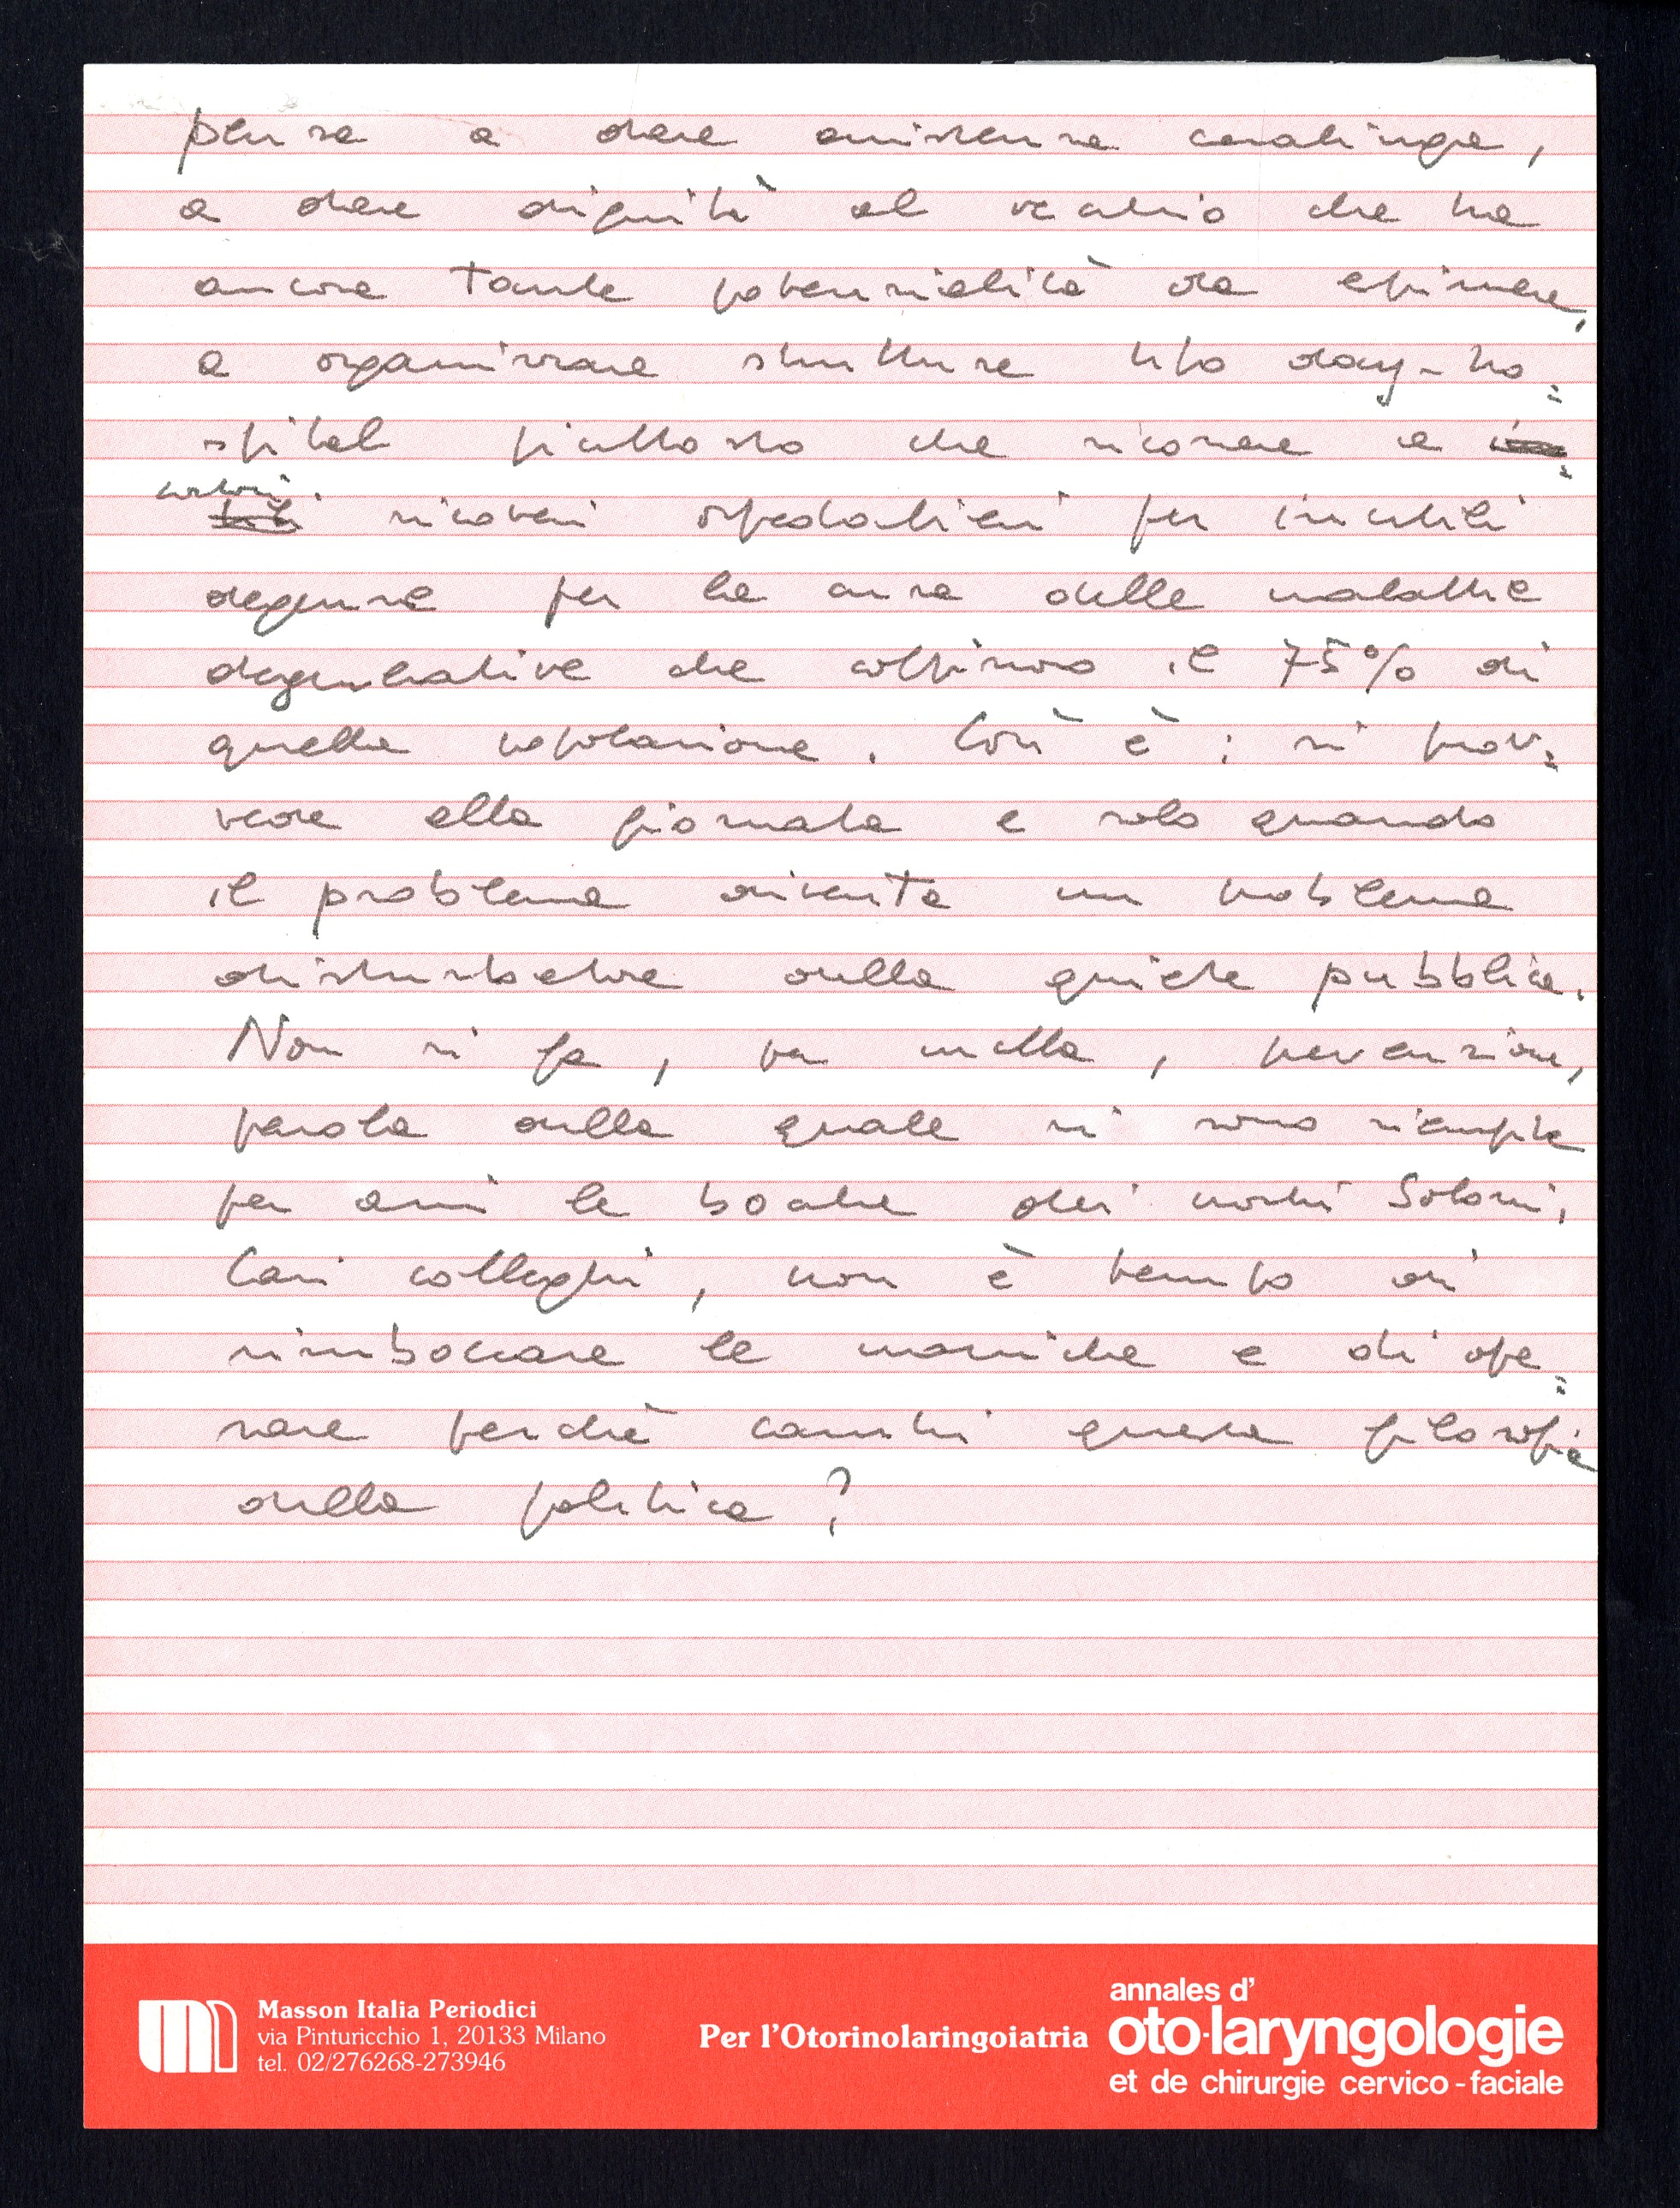 pensa a dare assistenza casalinga,
a dare dignità al vecchio che ha
ancora tante potenzialità da esprimere,
a organizzare strutture tipo day-ho=
spital piuttosto che ricorrere a
costosi
ricoveri ospedalieri per inutili
degenze per la cura delle malattie
degenerative che colpiscono il 75% di
quella popolazione. Così è: si prov=
vede alla giornata e solo quando
il problema diventa un problema
disturbatore della quiete pubblica.
Non si fa, per nulla, prevenzione,
parola della quale si sono riempite
per anni le bocche dei nostri Soloni.
Cari colleghi, non è tempo di
rimboccare le maniche e di ope=
rare perchè cambi questa filosofia
della politica?
Masson Italia Periodici
via Pinturicchio 1, 20133 Milano
tel. 02/276268-273946
Per l'Otorinolaringoiatria
annales d'
oto-laryngologie
et de chirurgie cervico-faciale